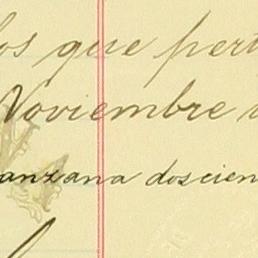 los que pert
Noviembre
anzana doscien